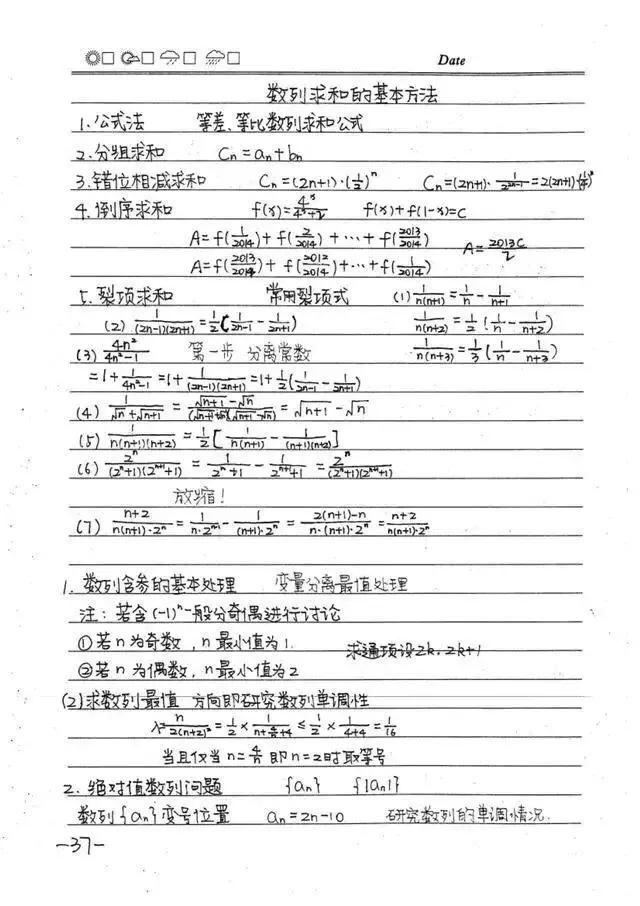 Date
数列求和的基本方法
1. 公式法 等差、等比数列求和公式
2. 分组求和 Cn=an+bn
3. 错位相减求和 Cn=(2n+1)·(1/2)^n Cn=(2n+1)·1/2^(2n-1)=2(2n+1)(1/4)^n
4. 倒序求和 f(x)=4^x/(4^x+2) f(x)+f(1-x)=C
A=f(1/2014)+f(2/2014)+…+f(2013/2014)
A=2013C/2
A=f(2013/2014)+f(2012/2014)+…+f(1/2014)
5. 裂项求和 常用裂项式 (1) 1/n(n+1)=1/n-1/(n+1)
(2) 1/(2n-1)(2n+1)=1/2[1/(2n-1)-1/(2n+1)] 1/n(n+2)=1/2(1/n-1/(n+2))
(3) 4n²/(4n²-1) 第一步 分离常数 1/n(n+3)=1/3(1/n-1/(n+3))
=1+1/(4n²-1)=1+1/(2n-1)(2n+1)=1+1/2(1/(2n-1)-1/(2n+1))
(4) 1/(√n+√(n+1))=(√(n+1)-√n)/(√(n+1)+√n)(√(n+1)-√n)=√(n+1)-√n
(5) 1/n(n+1)(n+2)=1/2[1/n(n+1)-1/(n+1)(n+2)]
(6) 2^n/(2^n+1)(2^(n+1)+1)=1/(2^n+1)-1/(2^(n+1)+1)=2^n/(2^n+1)(2^(n+1)+1)
放缩!
(7) (n+2)/n(n+1)·2^n=1/n·2^(n-1)-1/(n+1)·2^n=(2(n+1)-n)/n·(n+1)·2^n=(n+2)/n(n+1)·2^n
1. 数列含参的基本处理 变量分离最值处理
注:若含(-1)^n一般分奇偶进行讨论
①若n为奇数,n最小值为1. 求通项设2k,2k+1
②若n为偶数,n最小值为2
(2)求数列最值 方向即研究数列单调性
λ=n/2(n+2)²=1/2×1/(n+4/n+4)≤1/2×1/(4+4)=1/16
当且仅当n=4/n即n=2时取等号
2. 绝对值数列问题 {an} {|an|}
数列{an}变号位置 an=2n-10 研究数列的单调情况.
-37-